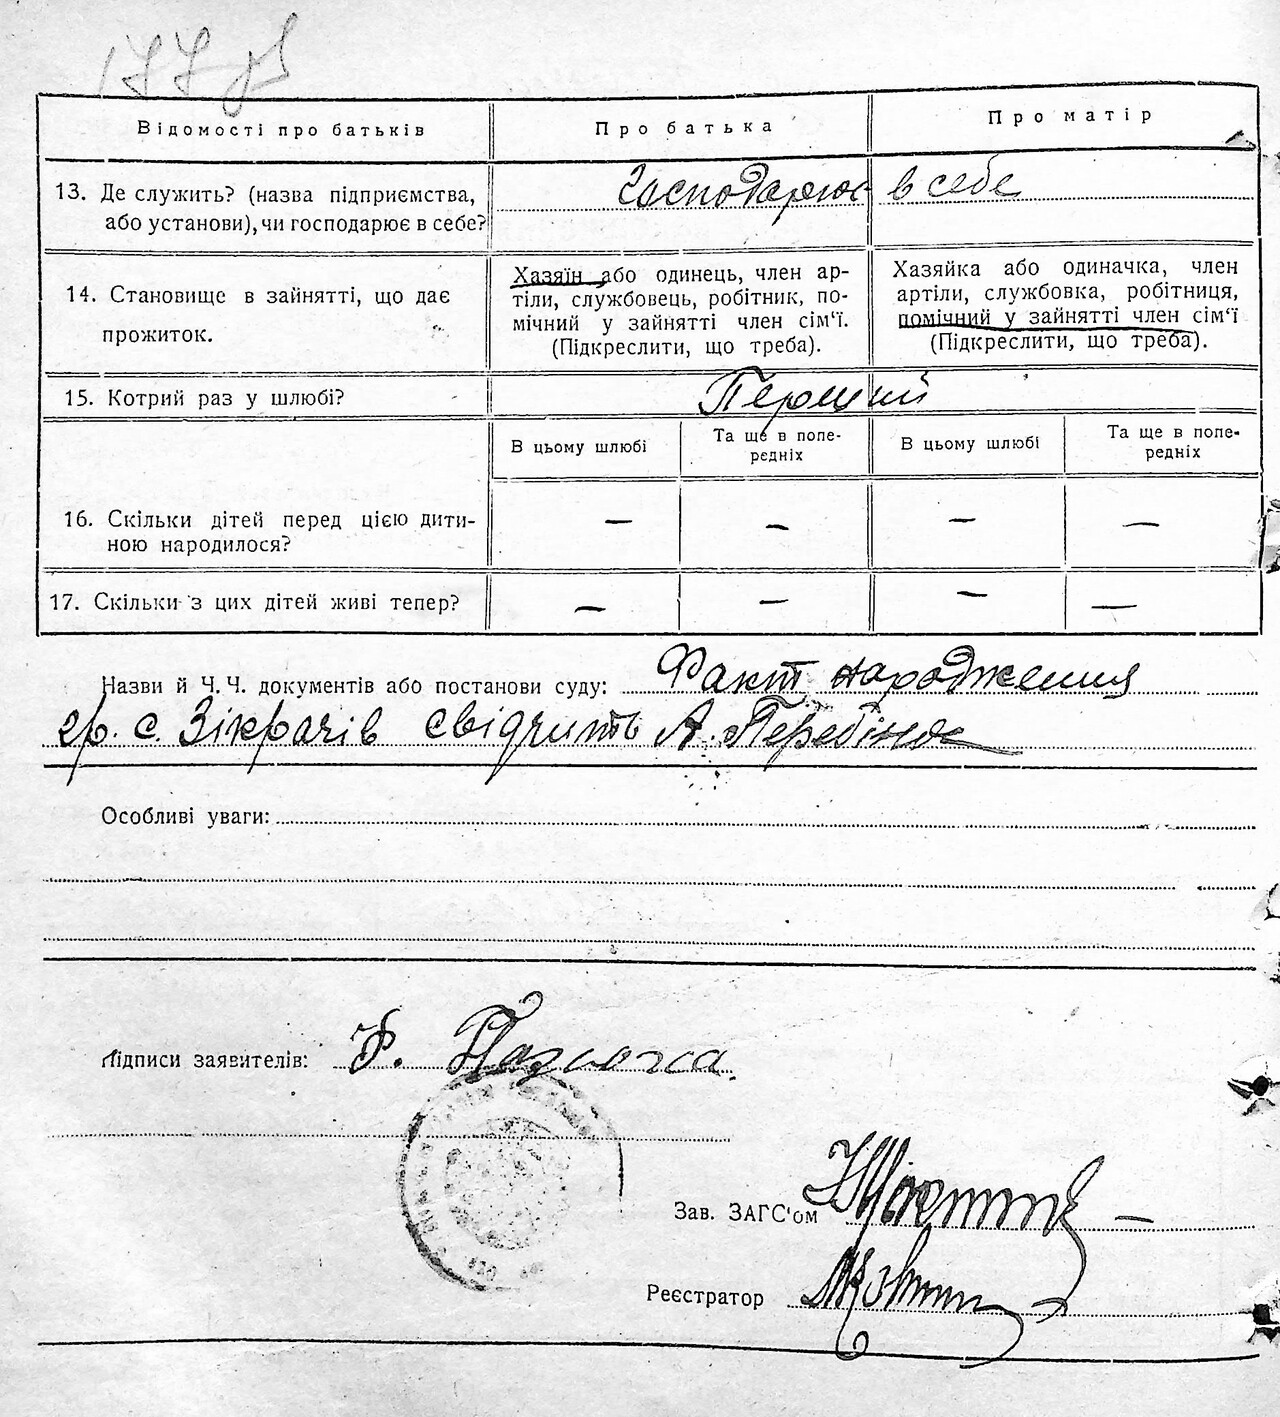 177
Відомості про батьків
Про батька
Про матір
13. Де служить? (назва підприємства,
або установи), чи господарює в себе?
Господарює в себе
14. Становище в зайнятті, що дає
прожиток.
Хазяїн або одинець, член ар-
тіли, службовець, робітник, по-
мічний у зайнятті член сім‘ї.
(Підкреслити, що треба).
Хазяйка або одиначка, член
артіли, службовка, робітниця,
помічний у зайнятті член сім‘ї
(Підкреслити, що треба).
15. Котрий раз у шлюбі?
Перший
В цьому шлюбі
Та ще в попе-
редніх
В цьому шлюбі
Та ще в попе-
редніх
16. Скільки дітей перед цією дити-
ною народилося?
— — — —
17. Скільки з цих дітей живі тепер?
— — — —
Назви й Ч. Ч. документів або постанови суду: Факт народження
гр. с. Зікрачів свідчить А. Перебіно
Особливі уваги:
Підписи заявителів:
Зав. ЗАГС‘ом
Реєстратор